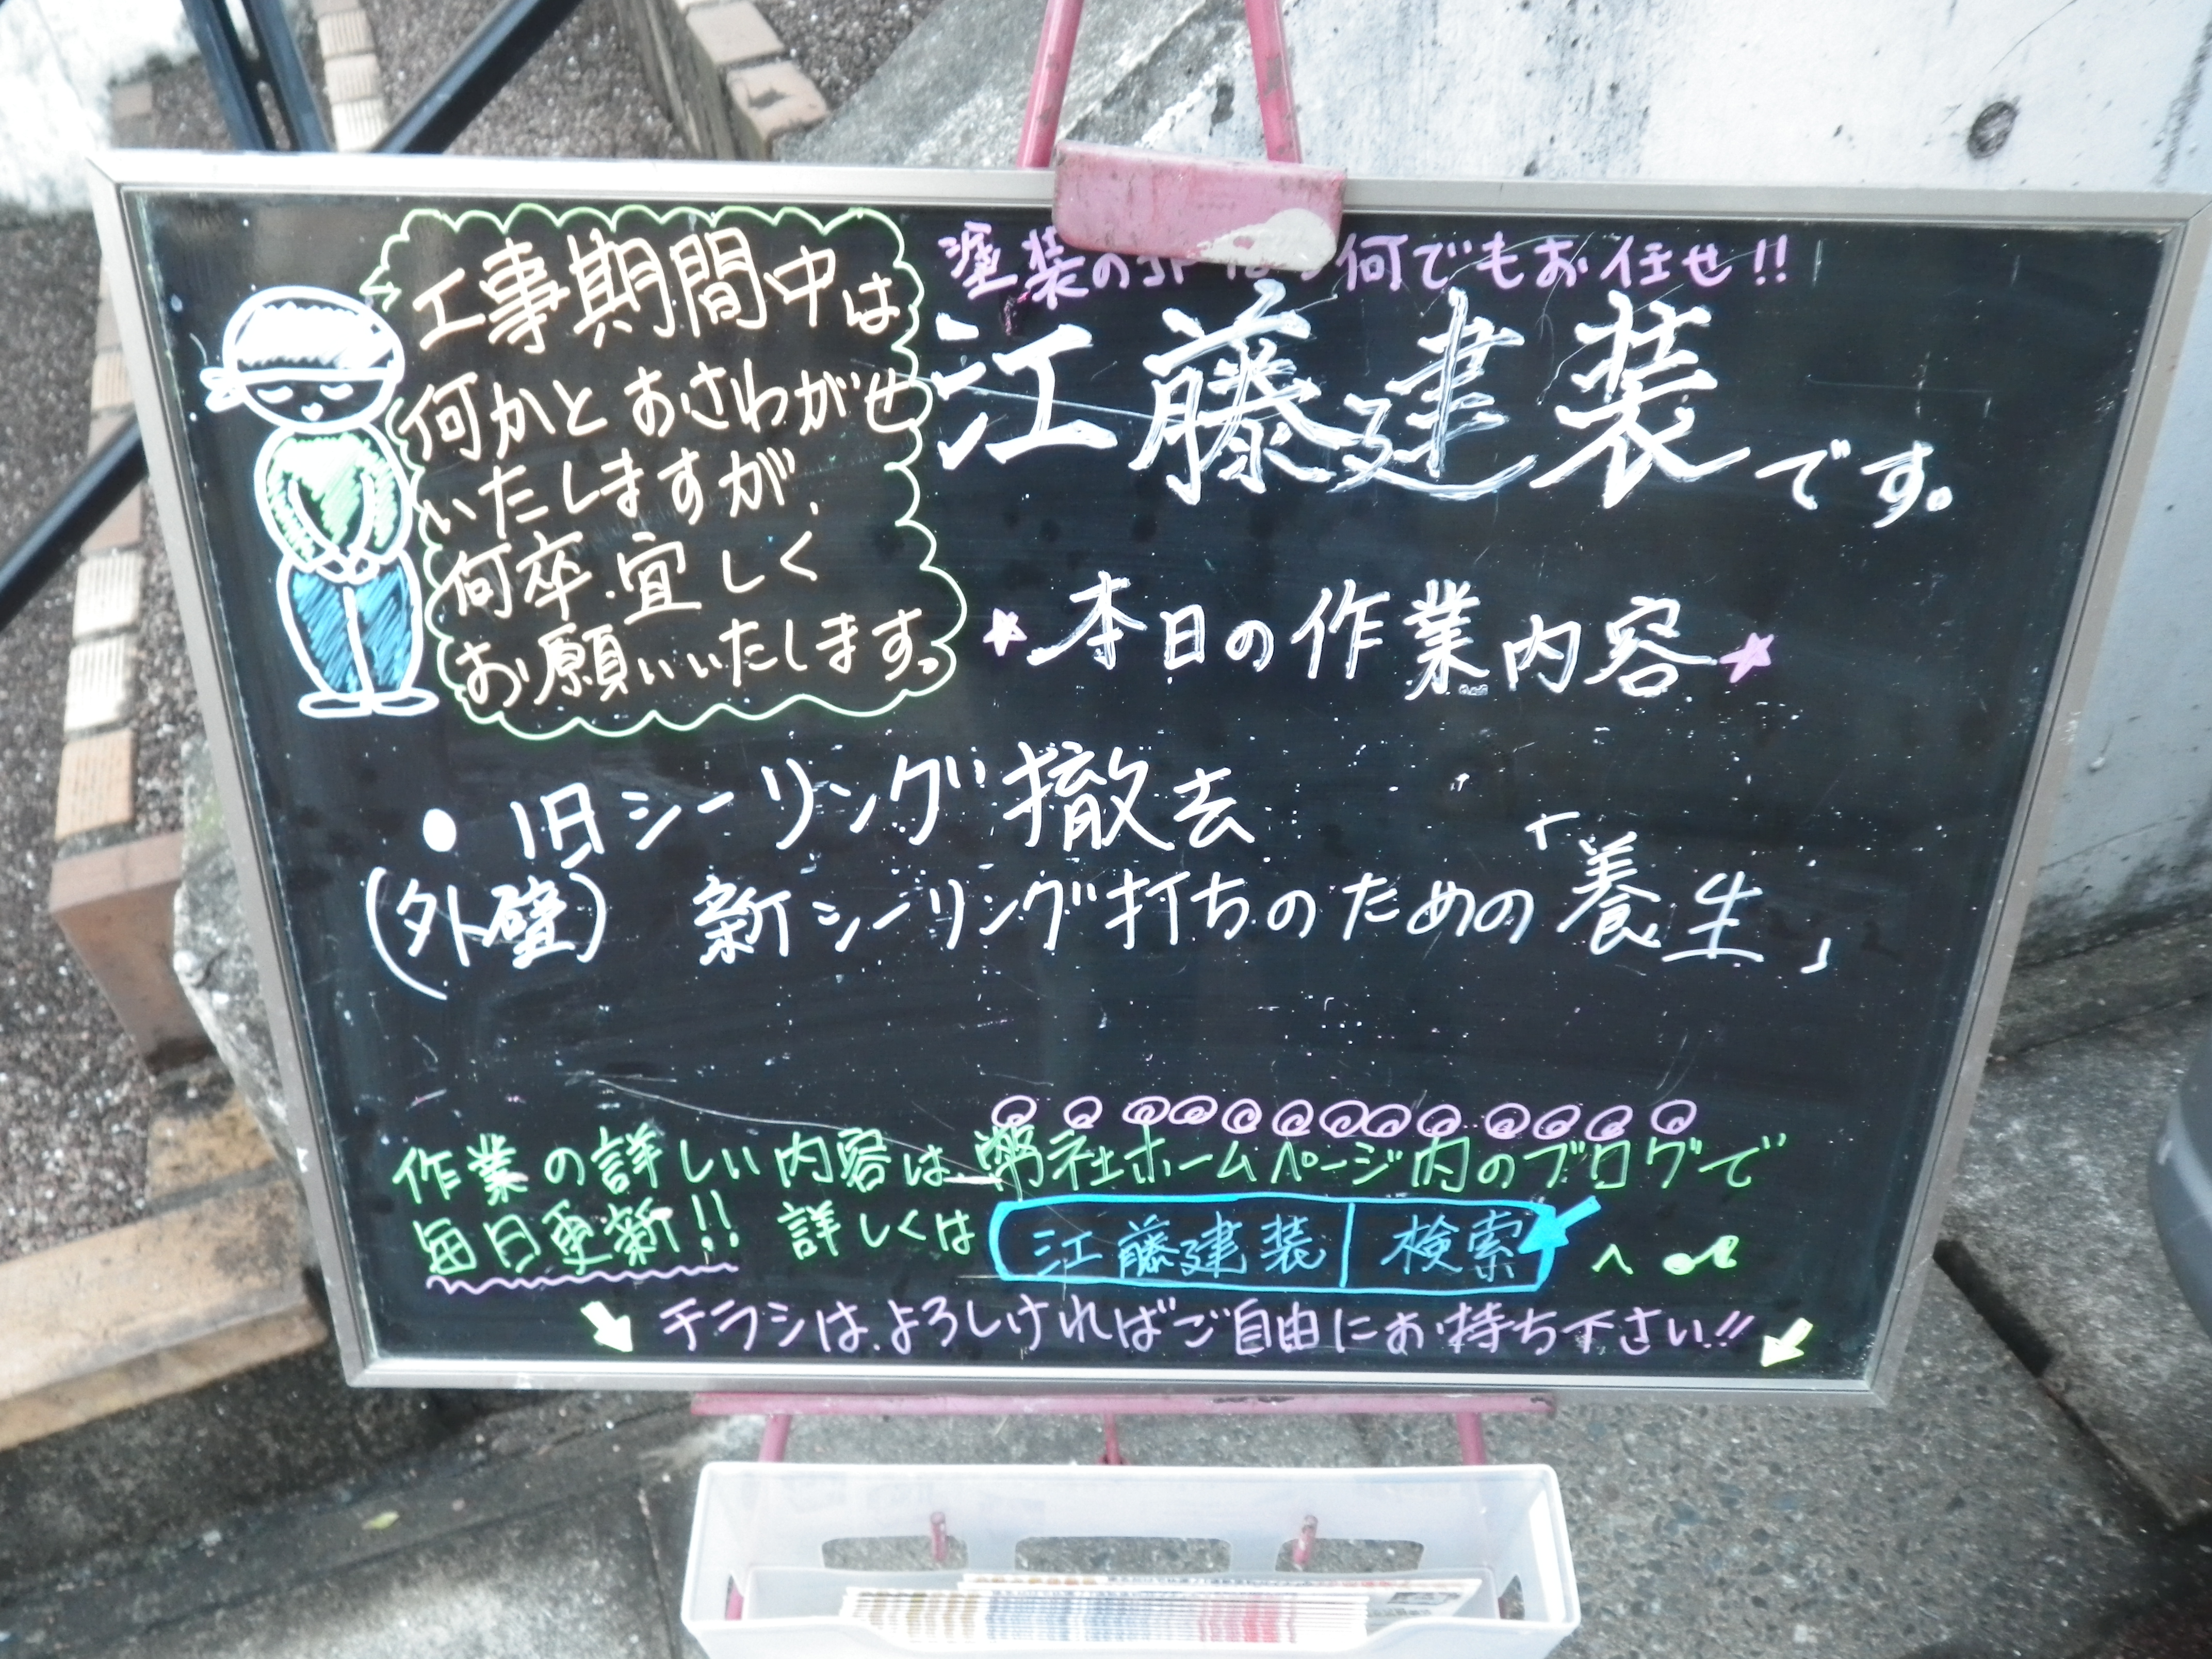 工事期間中は
何かとおさわがせ
いたしますが、
何卒、宜しく
お願いいたします。
塗装の 何でもお任せ!!
江藤建装です。
★本日の作業内容★
● 旧シーリング撤去
(外壁) 新シーリング打ちのための「養生」
作業の詳しい内容は弊社ホームページ内のブログで
毎日更新!! 詳しくは 江藤建装 検索 へ
チラシは、よろしければご自由にお持ち下さい!!